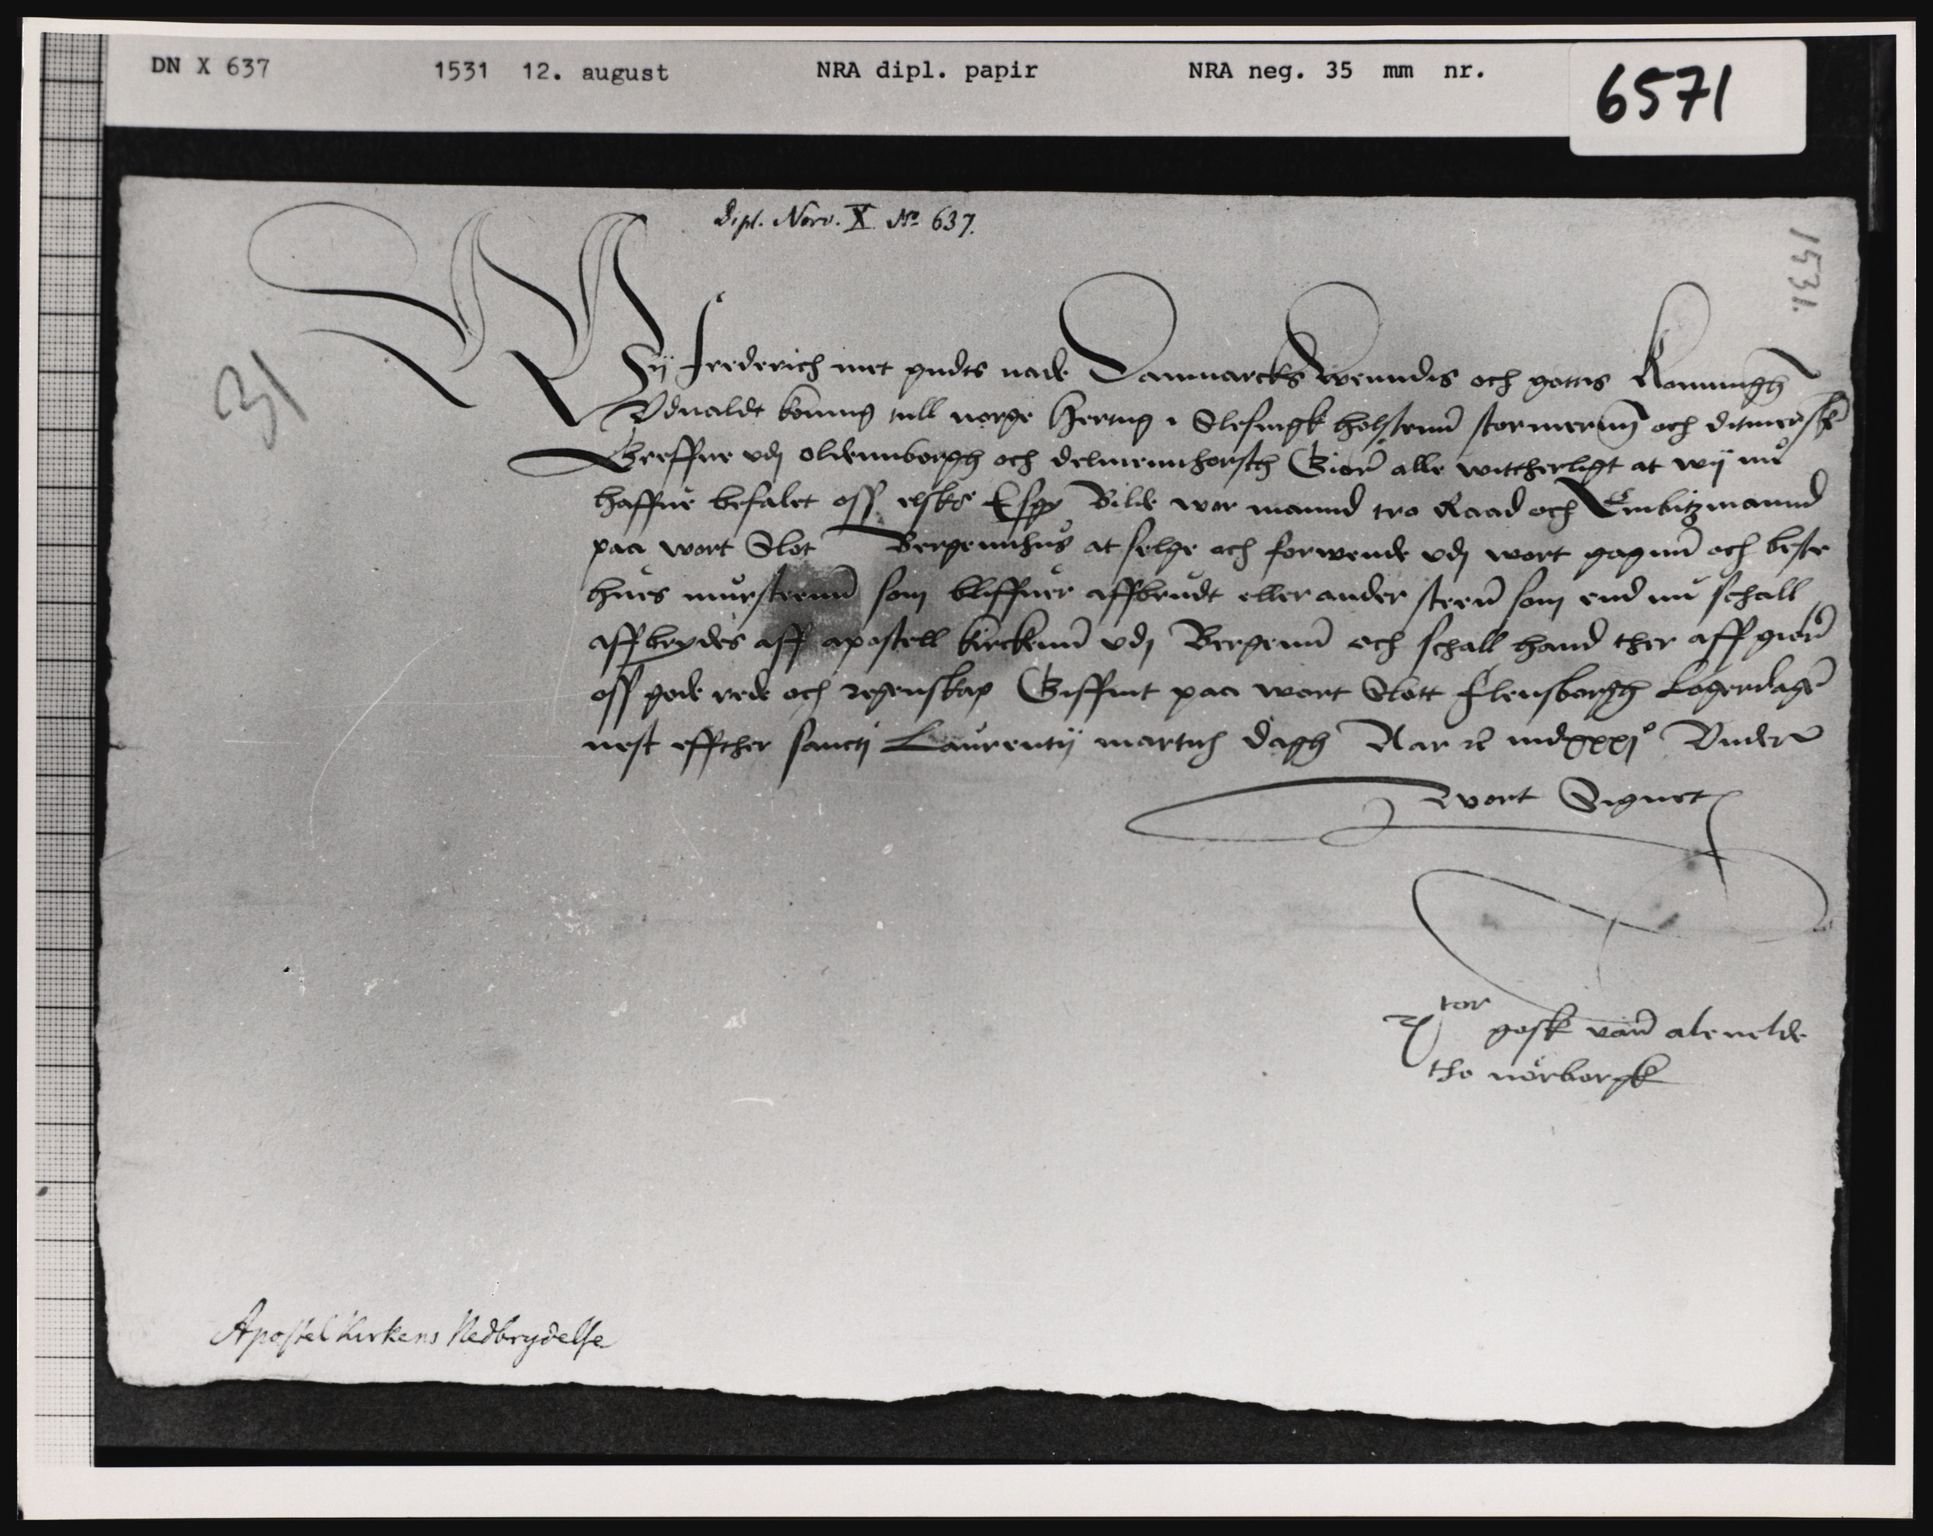 DN X 637 1531 12. august NRA dipl. papir NRA neg. 35 mm nr. 6571
Dipl. Norv. X No 637.
1531.
31
Wij Frederich met gudts nade Danmarcks Wenndis och gottis Konningh
Vdualdt koning till norge Hertug i Slesuigk holstenn stormernn och ditmersken
Greffue vdj oldennborgh och delmennhorsth Giore alle witherligt at wij nu
haffue befalet oss elske Eske Bilde wor mannd tro Raad och Embitzmannd
paa wort Slot Bergennhus at selge och forwende vdj wort gagnn och beste
hues mursteenn som bliffuer affbrudt eller ander steen som end nu schall
affbrydes aff apostell kirckenn vdj Bergenn och schall hand ther aff giøre
oss gode rede och regenskap Giffuit paa wort Slott Flensborgh Logerdagen
nest effther sancti Laurentij martiris dagh Aar etc mdxxxjo Vnder
wort Signet
Rtor
gosk vann aleuelde
tho norborgk
Apostel Kirkens Nedbrydelse